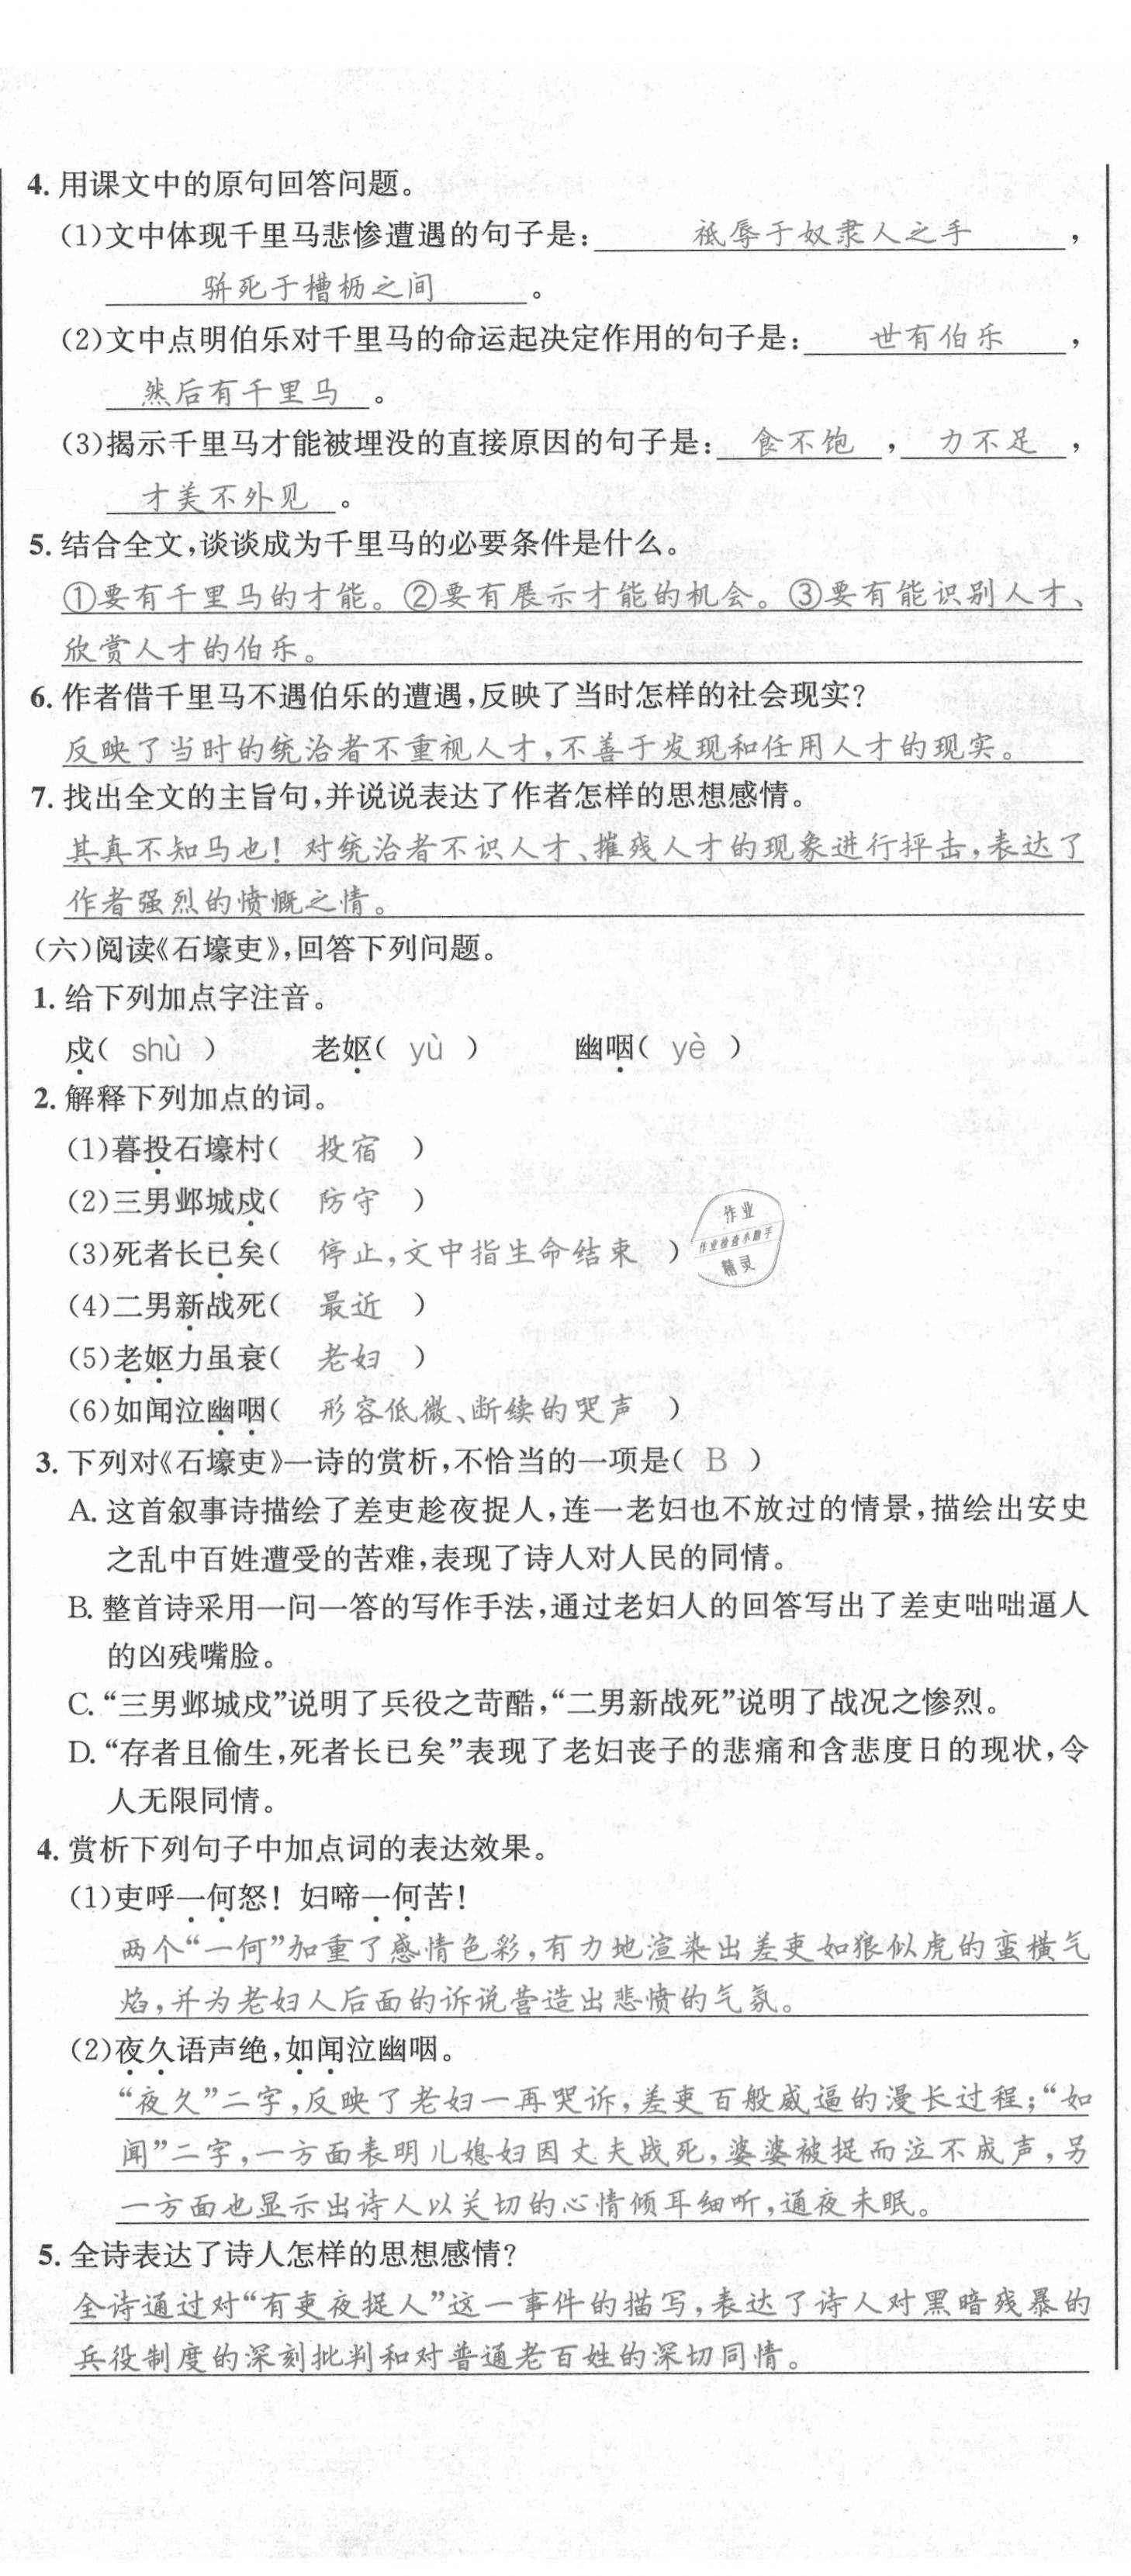 4. 用课文中的原句回答问题。
(1)文中体现千里马悲惨遭遇的句子是: 祗辱于奴隶人之手 ,
骈死于槽枥之间 。
(2)文中点明伯乐对千里马的命运起决定作用的句子是: 世有伯乐 ,
然后有千里马 。
(3)揭示千里马才能被埋没的直接原因的句子是: 食不饱 , 力不足 ,
才美不外见 。
5. 结合全文,谈谈成为千里马的必要条件是什么。
①要有千里马的才能。②要有展示才能的机会。③要有能识别人才、
欣赏人才的伯乐。
6. 作者借千里马不遇伯乐的遭遇,反映了当时怎样的社会现实?
反映了当时的统治者不重视人才,不善于发现和任用人才的现实。
7. 找出全文的主旨句,并说说表达了作者怎样的思想感情。
其真不知马也! 对统治者不识人才、摧残人才的现象进行抨击,表达了
作者强烈的愤慨之情。
(六)阅读《石壕吏》,回答下列问题。
1. 给下列加点字注音。
戍( shù ) 老妪( yù ) 幽咽( yè )
2. 解释下列加点的词。
(1)暮投石壕村( 投宿 )
(2)三男邺城戍( 防守 )
(3)死者长已矣( 停止,文中指生命结束 )
作业
作业检查小助手
精灵
(4)二男新战死( 最近 )
(5)老妪力虽衰( 老妇 )
(6)如闻泣幽咽( 形容低微、断续的哭声 )
3. 下列对《石壕吏》一诗的赏析,不恰当的一项是( B )
A. 这首叙事诗描绘了差吏趁夜捉人,连一老妇也不放过的情景,描绘出安史
之乱中百姓遭受的苦难,表现了诗人对人民的同情。
B. 整首诗采用一问一答的写作手法,通过老妇人的回答写出了差吏咄咄逼人
的凶残嘴脸。
C. “三男邺城戍”说明了兵役之苛酷,“二男新战死”说明了战况之惨烈。
D. “存者且偷生,死者长已矣”表现了老妇丧子的悲痛和含悲度日的现状,令
人无限同情。
4. 赏析下列句子中加点词的表达效果。
(1)吏呼一何怒! 妇啼一何苦!
两个“一何”加重了感情色彩,有力地渲染出差吏如狼似虎的蛮横气
焰,并为老妇人后面的诉说营造出悲愤的气氛。
(2)夜久语声绝,如闻泣幽咽。
“夜久”二字,反映了老妇一再哭诉,差吏百般威逼的漫长过程;“如
闻”二字,一方面表明儿媳妇因丈夫战死,婆婆被捉而泣不成声,另
一方面也显示出诗人以关切的心情倾耳细听,通夜未眠。
5. 全诗表达了诗人怎样的思想感情?
全诗通过对“有吏夜捉人”这一事件的描写,表达了诗人对黑暗残暴的
兵役制度的深刻批判和对普通老百姓的深切同情。